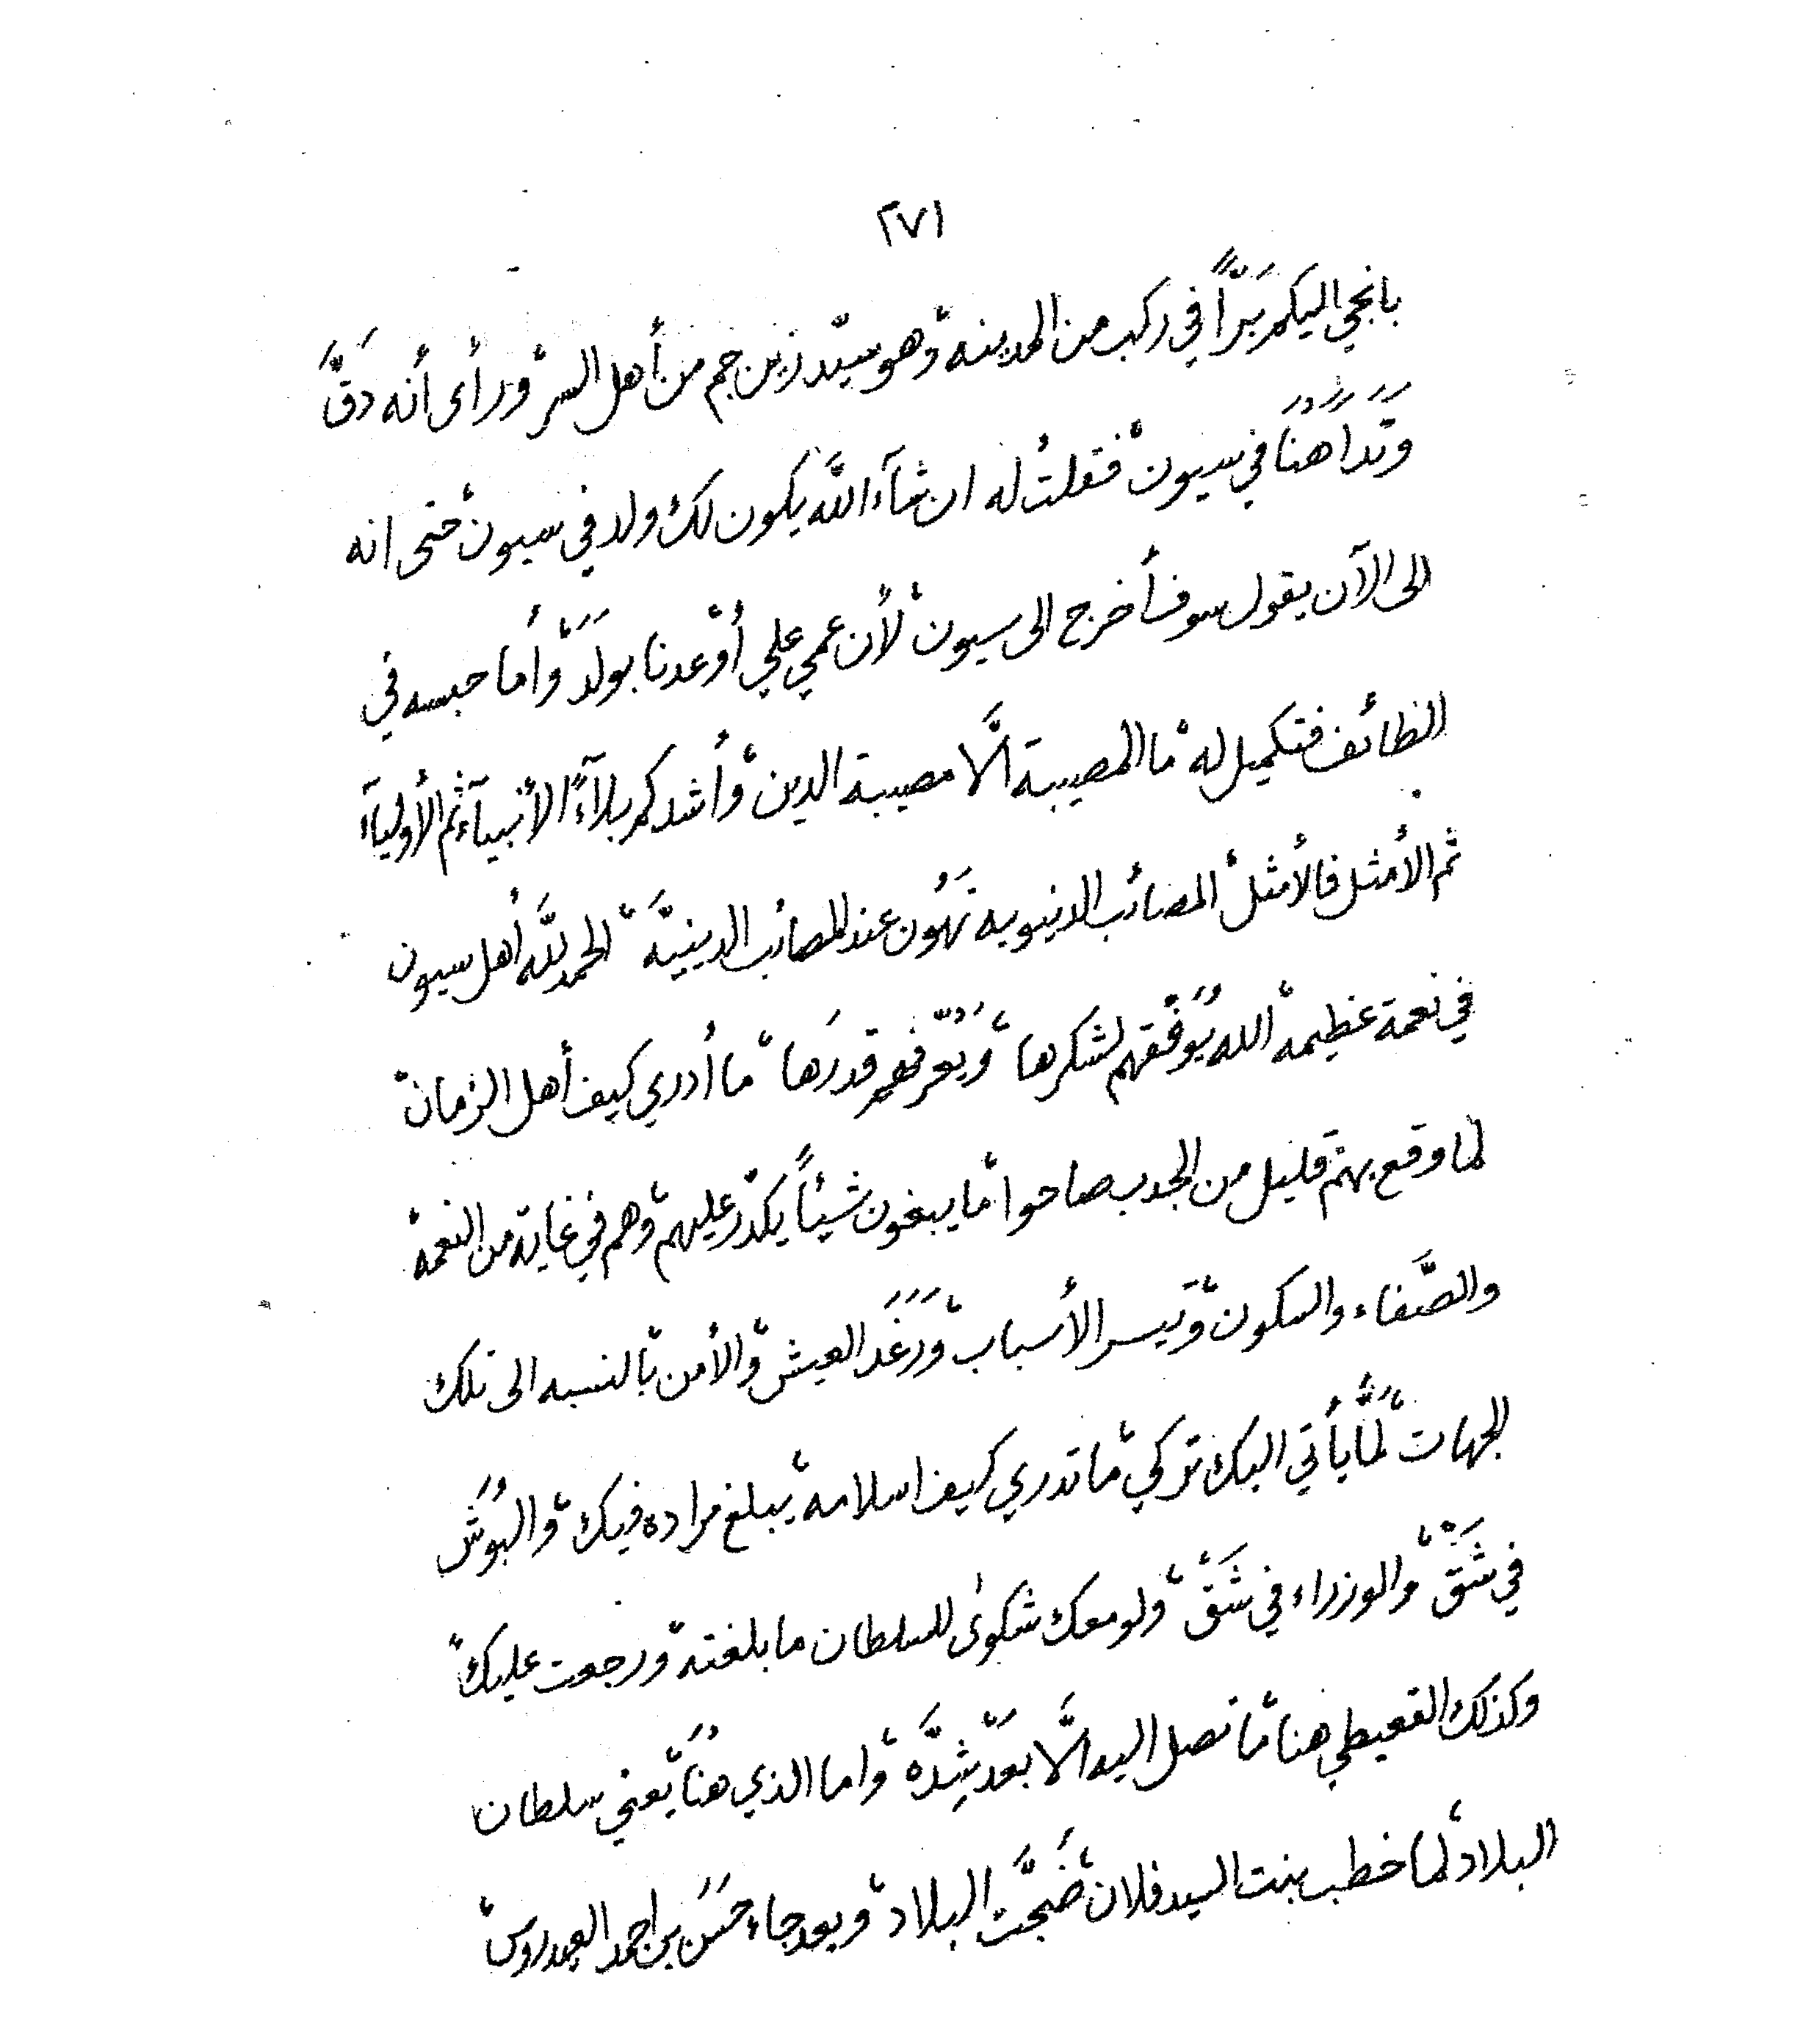 ٢٧١
بانجي اليكم بَرّاً في ركب من المدينه، وهو سيّد زين جم من أهل السر، ورأى أنه دَقَّ
وَتَداً هُنَا في سيون، فقلتُ له ان شآء اللَّه يكون لك ولد في سيون، حتى انه
الى الآن يقول سوف أخرج الى سيون، لأن عمي علي أوْعدنا بولَدَ، وأما حبسه في
الطائف فتكميل له، ما المصيبة الَّا مصيبة الدين، وأشدكم بلآءً الأنبيآء ثم الأوليآء
ثم الأمثل فالأمثل، المصائب الدنيويه تهُون عند المصائب الدينيّه، الحمد للَّه أهل سيون
في نعمة عظيمه، الله يُوَفِّقهم لشكرها، وَيُعَرِّفهم قدرَها، ما أدري كيف أهل الزمان،
لما وقع بهم قليل من الجدب صاحوا، ما يبغون شيئاً يكدّر عليهم، وهم في غاية من النعمة،
والصَّفاء والسكون، وتَيسر الأسباب، وَرَغَد العيش، والأمن، بالنسبه الى تلك
الجهات، لمَّا يأتي اليك تركي، ما تدري كيف اسلامه، يبلغ مراده فيك، والبُوَش
في شَقّْ، والوزراء في شَقّْ، ولو معك شكوىٰ للسلطان ما بلغته، ورجعت عليك،
وكذلك القعيطي هنا، ما تصل اليه الَّا بعدَ شِدَّه، واما الذي هُنَا يعني سلطان
البلاد، لما خطب بنت السيد فلان، ضَجَّت البلاد، وبعد جاء حسَن بن احمد العيدروس،